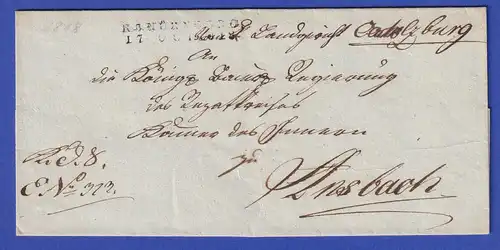 1818
R.3.NÜRNBERG
17 OCT
Vom K. Landgericht Cadolzburg
An
die Königl. Baier. Regierung
des Rezatkreises
Kammer des Innern
zu
Ansbach
R. d. S.
E No 313.